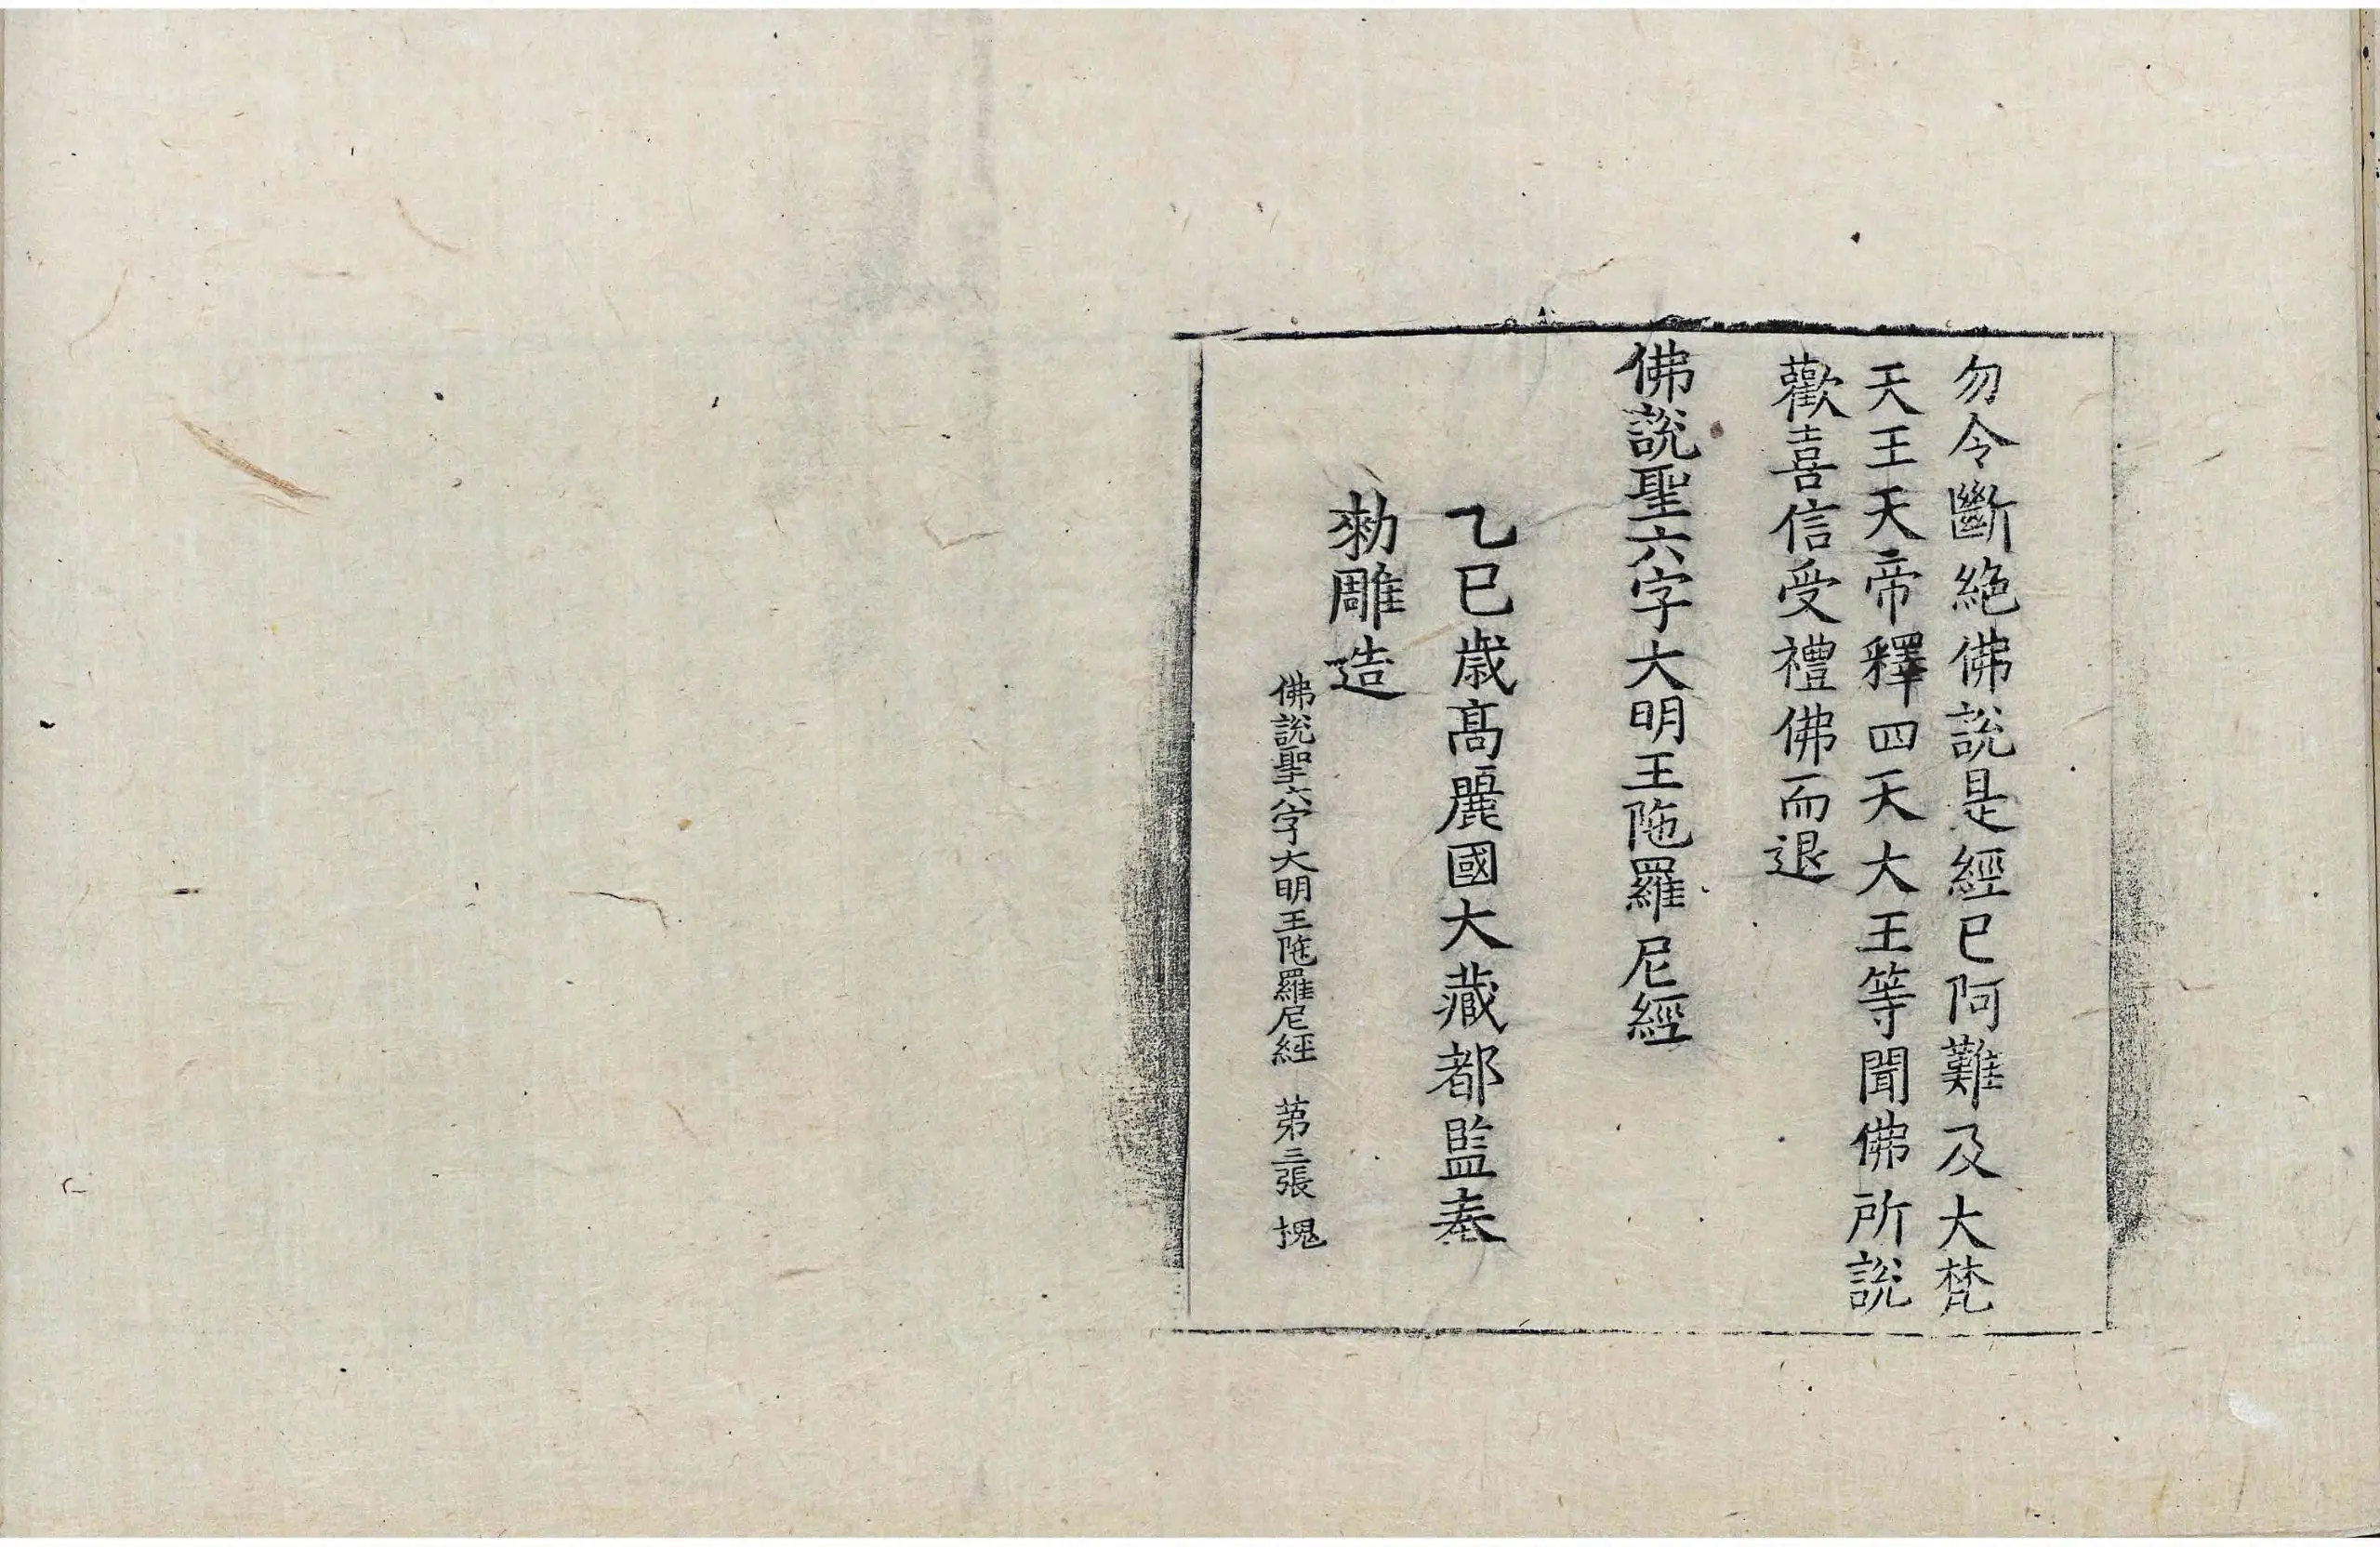 勿令斷絶佛說是經已阿難及大梵
天王天帝釋四天大王等聞佛所說
歡喜信受禮佛而退
佛說聖六字大明王陁羅尼經
乙巳歳髙麗國大藏都監奉
勑雕造
佛說聖六字大明王陁羅尼經 苐三張 槐